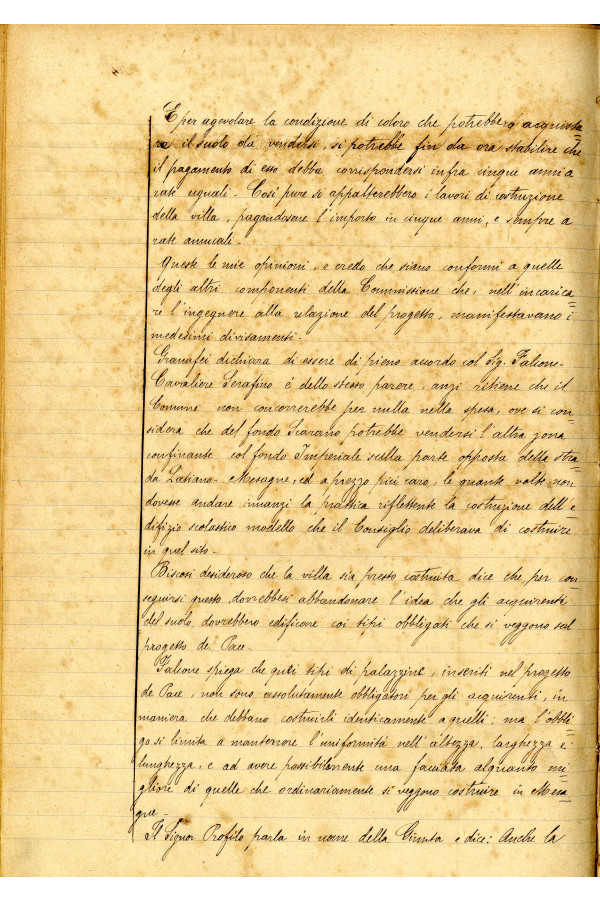 E per agevolare la condizione di coloro che potrebbero acquista=
re il suolo da vendersi, si potrebbe fin da ora stabilire che
il pagamento di esso debba corrispondersi infra cinque anni a
rate uguali. Così pure si appalterebbero i lavori di costruzione
della villa, pagandosene l'importo in cinque anni, e sempre a
rate annuali.
Queste le mie opinioni, e credo che siano conformi a quelle
degli altri componenti della Commissione che, nell'incarica=
re l'ingegnere alla relazione del progetto, manifestavano i
medesimi divisamenti.
Granafei dichiara di essere di pieno accordo col Sig. Falcone.
Cavaliere Serafino è dello stesso parere, anzi ritiene che il
Comune non concorrerebbe per nulla nella spesa, ove si con=
sidera che del fondo Scarano potrebbe vendersi l'altra zona
confinante col fondo Imperiale sulla parte opposta della stra=
da Latiano-Mesagne, ed a prezzo più caro, le quante volte non
dovesse andare innanzi la prattica riflettente la costruzione dell'e
difizio scolastico modello che il Consiglio deliberava di costruire
in quel sito.
Biscosi desideroso che la villa sia presto costruita dice che per con=
seguirsi questo dovrebbesi abbandonare l'idea che gli acquirenti
del suolo, dovrebbero edificare coi tipi obbligati che si veggono sul
progetto de Pace.
Falcone spiega che quei tipi di palazzine, inseriti nel progetto
de Pace, non sono assolutamente obbligatori per gli acquirenti, in
maniera che debbano costruirli identicamente a quelli; ma l'obbli=
go si limita a mantenere l'uniformità nell'altezza, larghezza e
lunghezza, e ad avere possibilmente una facciata alquanto mi=
gliore di quelle che ordinariamente si veggono costruire in Mesa=
gne.
Il Signor Profilo parla in nome della Giunta e dice: Anche la